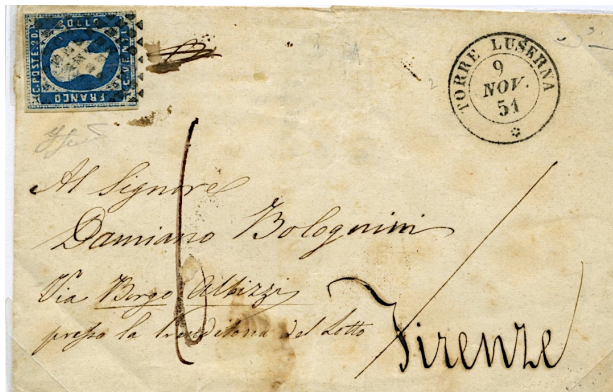 C. POSTE 20
FRANCO
C. VENTI
TORRE LUSERNA
9
NOV.
51
Al Signore
Damiano Bolognini
Via Borgo Albizzi
presso la del Lotto
Firenze